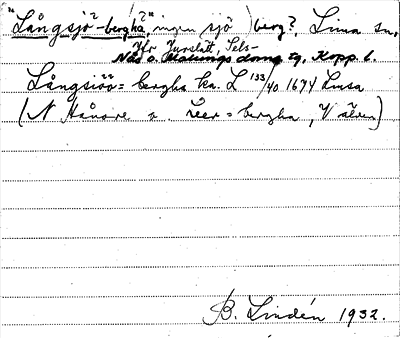 "Långsjö-bergha", ingen sjö berg?, Lima sn,
Jfr Turslätt, Sels-
Näs o. Malungs domsg, Kopp. l.
Långsiöö=bergha ka. L 133/40 1674 Lusa
(N Hånore o. Leer=bergha, V älven)
B. Lindén 1932.